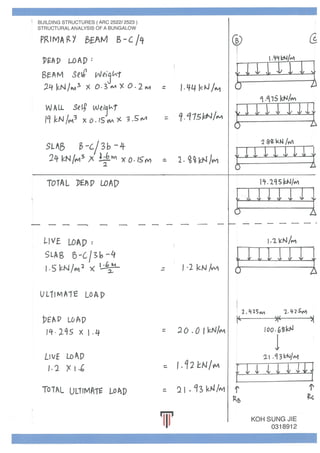 BUILDING STRUCTURES ( ARC 2522/ 2523 )
STRUCTURAL ANALYSIS OF A BUNGALOW
PRIMARY BEAM B-C/4
B C
DEAD LOAD :
BEAM Self Weight
24 kN/m³ x 0.3m x 0.2m = 1.44 kN/m
1.44 kN/m
WALL Self Weight
19 kN/m³ x 0.15m x 3.5m = 9.975kN/m
9.975 kN/m
SLAB B-C/3b-4
24 kN/m³ x 1.6m/2 x 0.15m = 2.88 kN/m
2.88 kN/m
TOTAL DEAD LOAD
14.295kN/m
LIVE LOAD :
SLAB B-C/3b-4
1.5 kN/m² x 1.6m/2 = 1.2 kN/m
1.2 kN/m
ULTIMATE LOAD
2.425m 2.425m
DEAD LOAD
14.295 x 1.4 = 20.01kN/m
100.68kN
LIVE LOAD
1.2 x 1.6 = 1.92 kN/m
21.93kN/m
TOTAL ULTIMATE LOAD = 21.93 kN/m
RB RC
KOH SUNG JIE
0318912